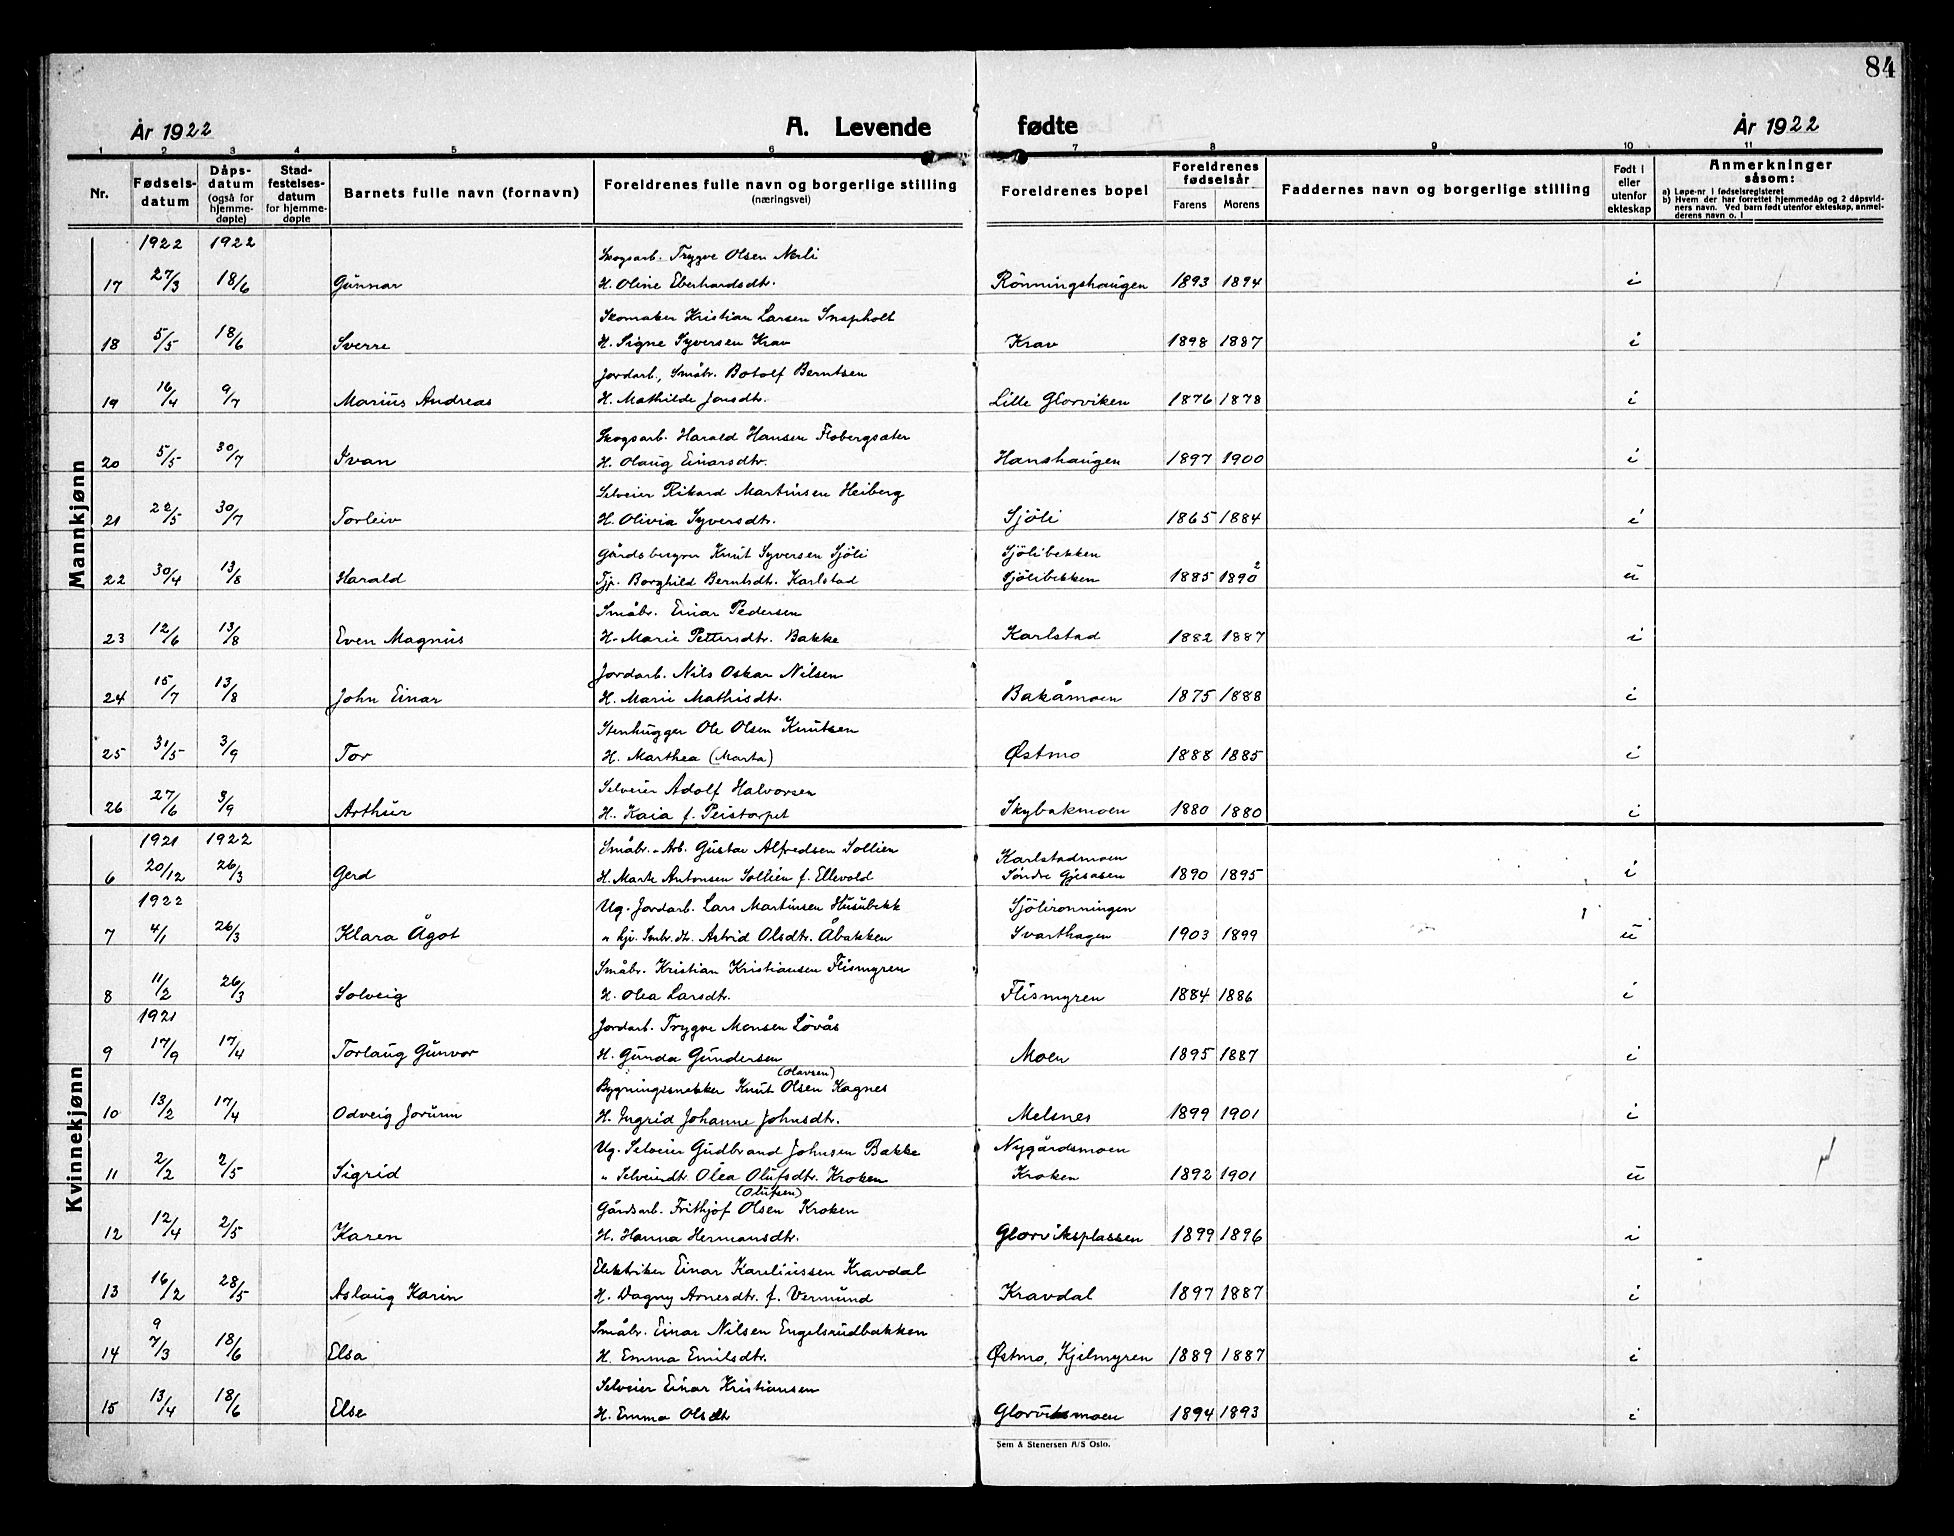 84
År 1922 A. Levende fødte År 1922
1 2 3 4 5 6 7 8 9 10 11
Nr. Fødselsdatum Dåpsdatum (også for hjemmedøpte) Stadfestelsesdatum for hjemmedøpte Barnets fulle navn (fornavn) Foreldrenes fulle navn og borgerlige stilling (næringsvei) Foreldrenes bopel Foreldrenes fødselsår Farens Morens Faddernes navn og borgerlige stilling Født i eller utenfor ekteskap Anmerkninger såsom:
a) Løpe-nr i fødselsregisteret
b) Hvem der har forrettet hjemmedåp og 2 dåpsvidners navn. Ved barn født utenfor ekteskap, anmelderens navn o. l
Mannkjønn
1922 1922
Skogsarb. Trygve Olsen Nerli
17 27/3 18/6 Gunnar H. Oline Eberhardsdtr. Rönningshaugen 1893 1894 i
Skomaker Kristian Larsen Snapholt
18 5/5 18/6 Sverre H. Signe Syversen Krav Krav 1898 1887 i
Jordarb., Småbr. Botolf Berntsen
19 16/4 9/7 Marius Andreas H. Mathilde Jonsdtr. Lille Glorviken 1876 1878 i
Skogsarb. Harald Hansen Flobergsæter
20 5/5 30/7 Ivan H. Olaug Einarsdtr. Hanshaugen 1897 1900 i
Selveier Rikard Martinsen Heiberg
21 22/5 30/7 Torleiv H. Olivia Syversdtr. Sjöli 1865 1884 i
Gårdsbruger Knut Syversen Sjöli Sjölibekken
22 30/4 13/8 Harald Tjp. Borghild Berntsdtr. Karlstad Sjölibekken 1885 1890 2 u
Småbr. Einar Pedersen
23 12/6 13/8 Even Magnus H. Marie Pettersdtr. Bakke Karlstad 1882 1887 i
Jordarb. Nils Oskar Nilsen
24 15/7 13/8 John Einar H. Marie Mathisdtr. Bakåmoen 1875 1888 i
Stenhugger Ole Olsen Knutsen
25 31/5 3/9 Tor H. Marthea (Marta) Østmo 1888 1885 i
Selveier Adolf Halvorsen
26 27/6 3/9 Arthur H. Kaia f. Peistorpet Skybakmoen 1880 1880 i
Kvinnekjønn
1921 1922 Småbr. - Arb. Gustav Alfredsen Sollien Karlstadmoen
6 20/12 26/3 Gerd H. Marte Antonsen Sollien f. Ellevold Söndre Gjesåsen 1890 1895 i
1922 Ug. Jordarb. Lars Martinsen Husubekk Sjölirönningen
7 4/1 26/3 Klara Ågot " hjv. Smbr.dtr. Astrid Olsdtr. Åbakken Svarthagen 1903 1899 u
Småbr. Kristian Kristiansen Flismyren
8 11/2 26/3 Solveig H. Olea Larsdtr. Flismyren 1884 1886 i
1921 Jordarb. Trygve Monsen Lövås
9 17/9 17/4 Torlaug Gunvor H. Gunda Gundersen Moen 1895 1887 i
(Olavsen)
Bygningssnekker Knut Olsen Kagnes
10 13/2 17/4 Odveig Jorunn H. Ingrid Johanne Johnsdtr. Melsnes 1899 1901 i
Ug. Selveier Gudbrand Johnsen Bakke Nygårdsmoen
11 2/2 2/5 Sigrid " Selveierdt Olea Olufsdtr. Kroken Kroken 1892 1901 u
(Olufsen)
Gårdsarb. Frithjof Olsen Kroken
12 12/4 2/5 Karen H. Hanna Hermansdtr. Glorviksplassen 1899 1896 i
Elektriker Einar Kareliussen Kravdal
13 16/2 28/5 Aslaug Karin H. Dagny Arnesdtr. f. Vermund Kravdal 1897 1887 i
9 Småbr. Einar Nilsen Engelsrudbakken
14 7/3 18/6 Elsa H. Emma Emilsdtr. Østmo, Kjelmyren 1889 1887 i
Selveier Einar Kristiansen
15 13/4 18/6 Else H. Emma Olsdt Glorviksmoen 1894 1893 i
Sem & Stenersen A/S Oslo.